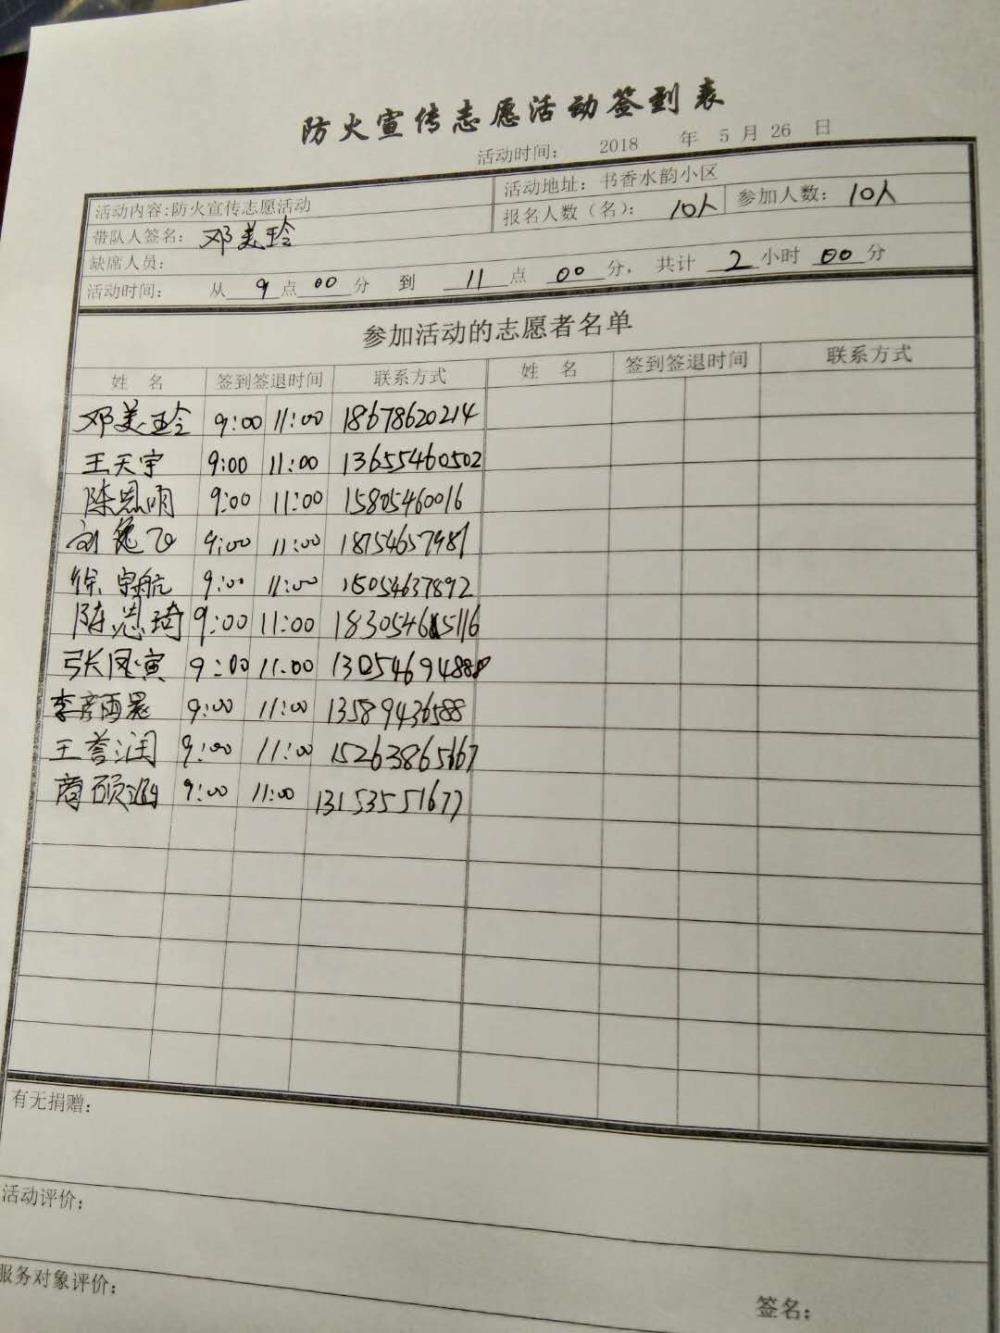 防火宣传志愿活动签到表
活动时间： 2018 年 5 月 26 日
活动内容:防火宣传志愿活动 活动地址：书香水韵小区
带队人签名：邓美玲 报名人数（名）： 10人 参加人数： 10人
缺席人员：
活动时间： 从 9 点 00 分 到 11 点 00 分， 共计 2 小时 00 分
参加活动的志愿者名单
姓 名 签到签退时间 联系方式 姓 名 签到签退时间 联系方式
邓美玲 9:00 11:00 18678620214
王天宇 9:00 11:00 13655460502
陈恩明 9:00 11:00 15805460016
刘逸飞 9:00 11:00 18754657981
徐宗航 9:00 11:00 15054637892
陈恩琦 9:00 11:00 18305465116
张凤寅 9:00 11:00 13054694888
李彦雨晨 9:00 11:00 13589436588
王誉润 9:00 11:00 15263865167
商硕 9:00 11:00 13153551677
有无捐赠：
活动评价：
服务对象评价：
签名：